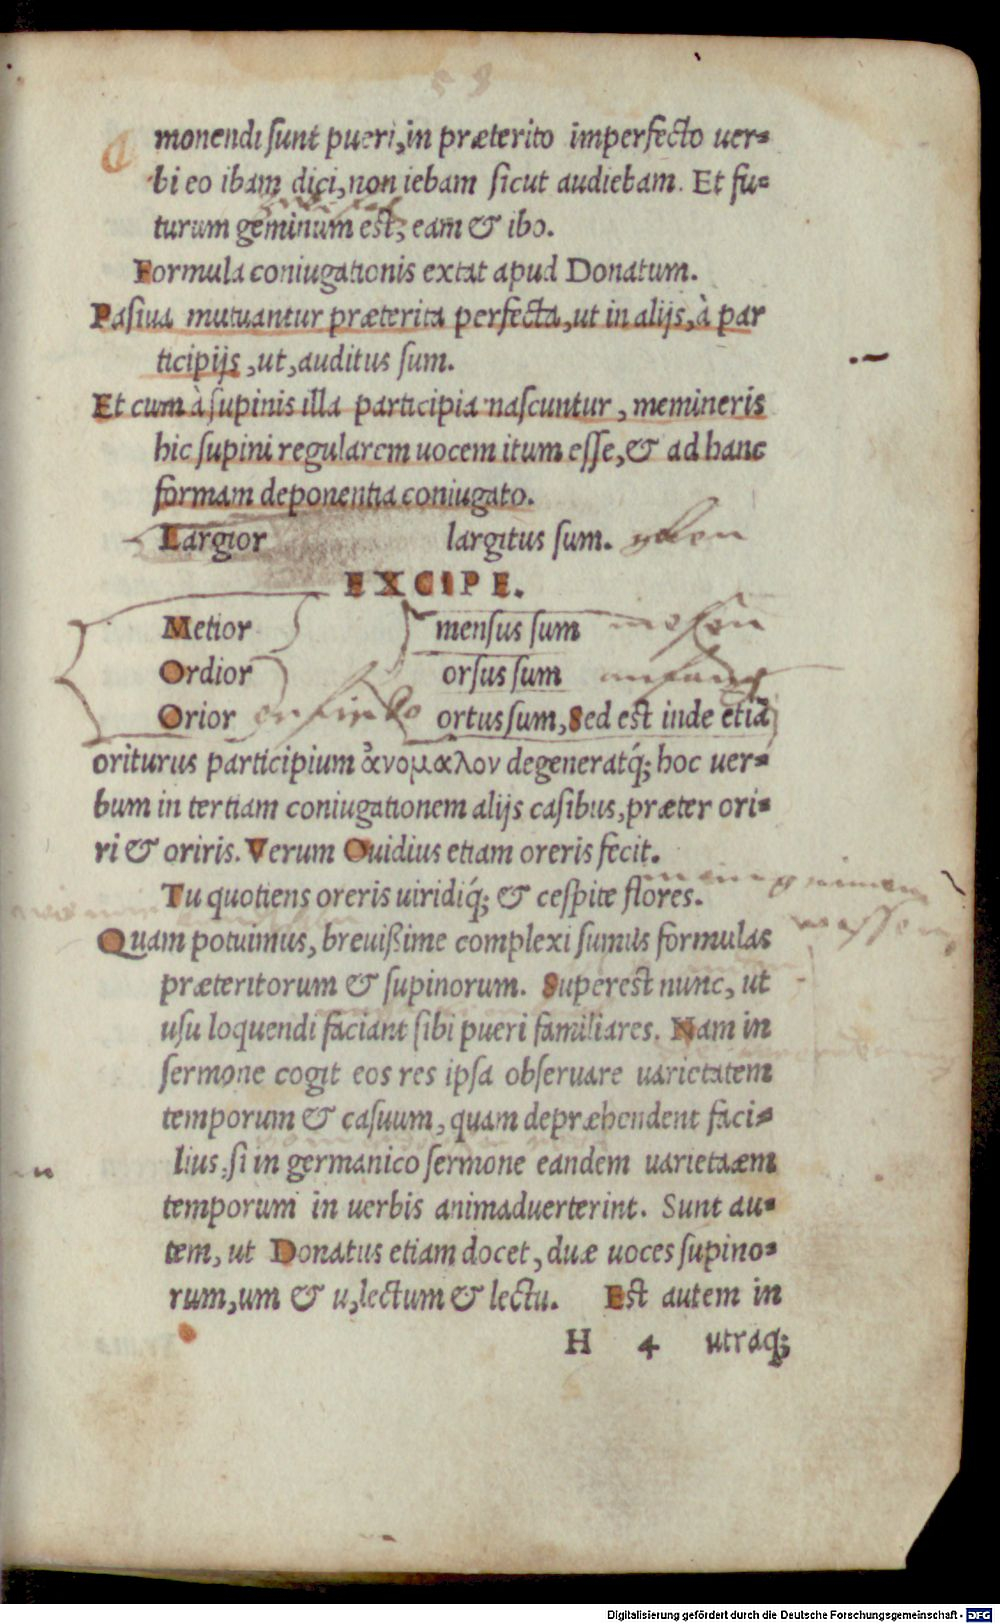 monendi sunt pueri, in præterito imperfecto uer-
bi eo ibam dici, non iebam sicut audiebam. Et fu-
turum geminum est; eam & ibo.
Formula coniugationis extat apud Donatum.
Pasiua mutuantur præterita perfecta, ut in alijs, à par
ticipijs, ut, auditus sum.
Et cum à supinis illa participia nascuntur, memineris
hic supini regularem uocem itum esse, & ad hanc
formam deponentia coniugato.
Largior largitus sum. geben
EXCIPE.
Metior mensus sum messen
Ordior orsus sum anfang
Orior ortus sum, Sed est inde etiã
oriturus participium ἀνομαλον degeneratq́; hoc uer-
bum in tertiam coniugationem alijs casibus, præter ori-
ri & oriris. Verum Ouidius etiam oreris fecit.
Tu quotiens oreris uiridiq́; & cespite flores.
Quam potuimus, breuißime complexi sumus formulas
præteritorum & supinorum. Superest nunc, ut
usu loquendi faciant sibi pueri familiares. Nam in
sermone cogit eos res ipsa obseruare uarietatem
temporum & casuum, quam depræhendent faci-
lius, si in germanico sermone eandem uarietaæm
temporum in uerbis animaduerterint. Sunt au-
tem, ut Donatus etiam docet, duæ uoces supino-
rum, um & u, lectum & lectu. Est autem in
H 4 utraq;
Digitalisierung gefördert durch die Deutsche Forschungsgemeinschaft - DFG